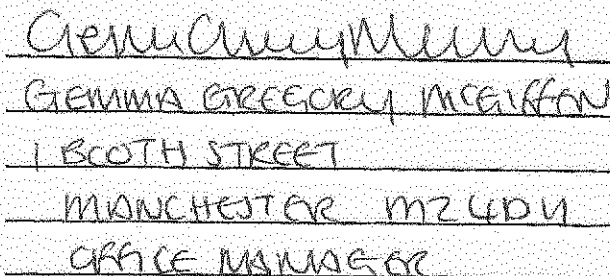 GEMMA GREGORY MCGIFFEN
1 BOOTH STREET
MANCHESTER M2 4DU
OFFICE MANAGER